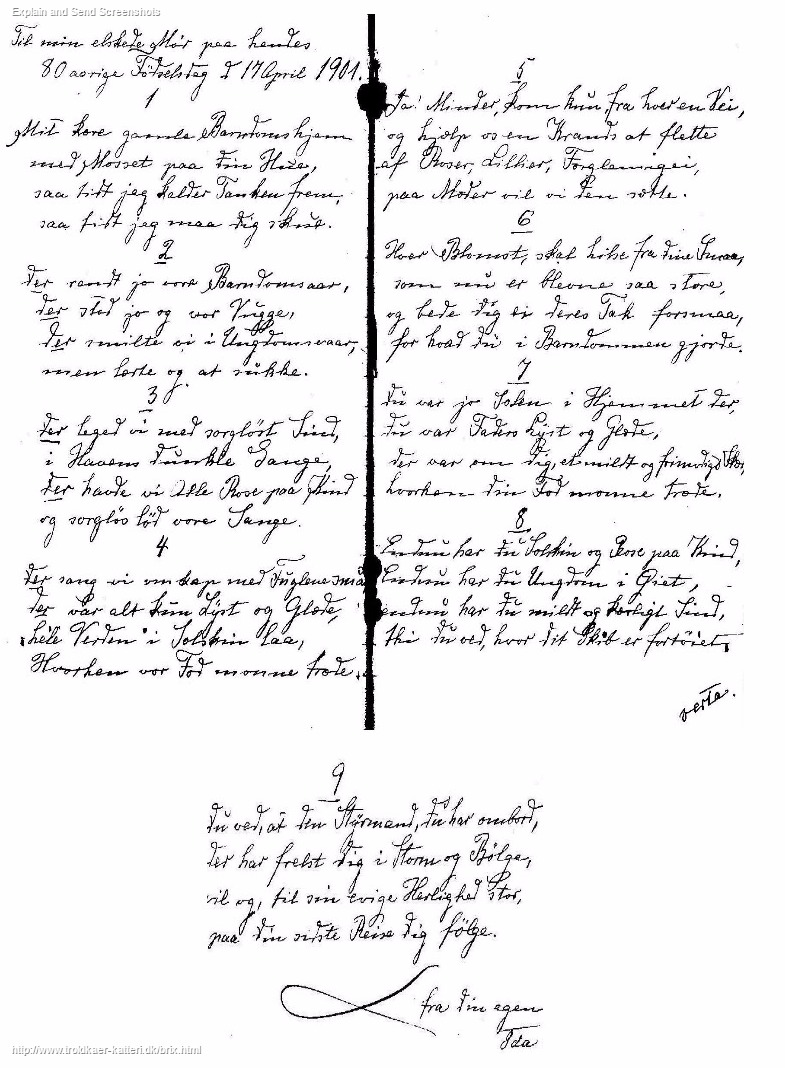 Explain and Send Screenshots
Til min elskede Mór paa hendes
80 aarige Födselsdag d 17 April 1901.
1
Mit kære gamle Barndomshjem
med Mosset paa din Hue,
saa tidt jeg kalder Tanken frem,
saa tidt jeg maa dig skue.
2
Der randt jo vore Barndomsaar,
der stod jo og vor Vugge,
der smilte vi i Ungdomsvaar,
men lærte og at sukke.
3
Der leged vi med sorglöst Sind,
i Havens dunkle Gange,
der havde vi alle Rose paa Kind
og sorglös löd vore Sange.
4
Der sang vi om kap med Fuglene smaa
der var alt kun Lyst og Glæde,
hele Verden i Solskin laa,
Hvorhen vor Fod monne træde.
5
Ja! Minder, kom kun, fra hver en Vei,
og hjælp os en Krands at flette
af Roser, Lillier, Forglemmigei,
paa Moder vil vi den sætte.
6
Hver Blomst, skal hilse fra dine Smaa,
som nu er blevne saa store,
og bede dig ei deres Tak forsmaa,
for hvad du i Barndommen gjorde.
7
Du var jo Solen i Hjemmet der,
du var Faders Lyst og Glæde,
der var om dig, et mildt og frimodigt Skær,
hvorhen din Fod monne træde.
8
Endnu har du Solskin og Rose paa Kind,
Endnu har du Ungdom i Øiet,
endnu har du mildt og kærligt Sind,
thi du ved, hvor dit Skib er fortöiet,
verte.
9
Du ved, at den Styrmand, du har ombord,
der har frelst dig i Storm og Bölge,
vil og, til sin evige Herlighed stor,
paa din sidste Reise dig fölge.
fra din egen
Ida
http://www.troldkaer-katteri.dk/brix.html